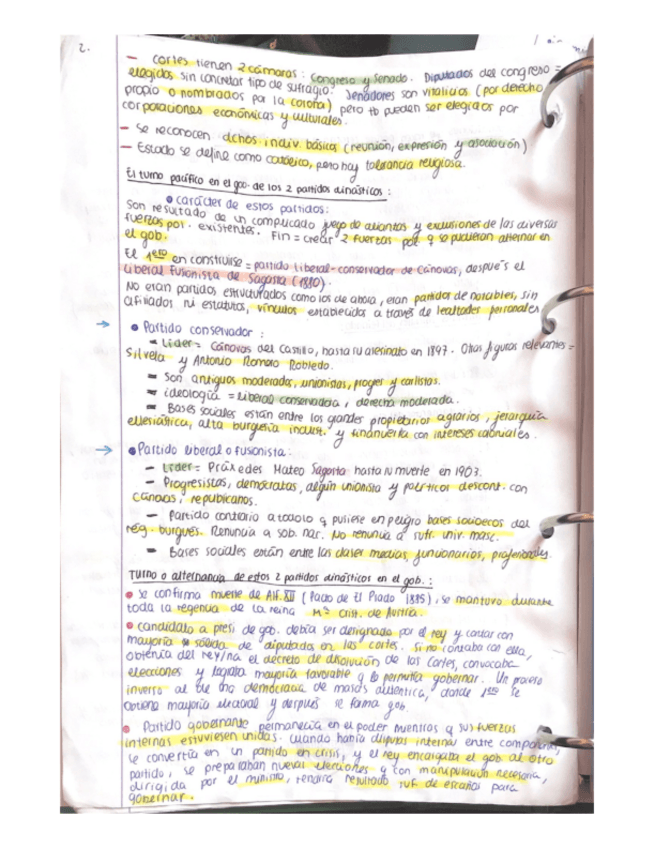 2.
- Cortes tienen 2 cámaras: Congreso y Senado. Diputados del congreso =
elegidos sin concretar tipo de sufragio. Senadores son vitalicios (por derecho
propio o nombrados por la corona) pero tb pueden ser elegidos por
corporaciones económicas y culturales.
- Se reconocen dchos. indiv. básicos (reunión, expresión y asociación)
- Estado se define como católico, pero hay tolerancia religiosa.
El turno pacífico en el gob. de los 2 partidos dinásticos:
• carácter de estos partidos:
Son resultado de un complicado juego de alianzas y exclusiones de las diversas
fuerzas pol. existentes. Fin = crear 2 fuerzas pol. q se pudieran alternar en
el gob.
El 1ero en construirse = partido liberal-conservador de Cánovas, después el
liberal fusionista de Sagasta (1880).
No eran partidos estructurados como los de ahora, eran partidos de notables, sin
afiliados ni estatutos, vínculos establecidos a través de lealtades personales
→ • Partido conservador:
- Líder = Cánovas del Castillo, hasta su asesinato en 1897. Otras figuras relevantes =
Silvela y Antonio Romero Robledo.
- Son antiguos moderados, unionistas, progres y carlistas.
- ideología = liberal conservadora, derecha moderada.
- Bases sociales están entre los grandes propietarios agrarios, jerarquía
eclesiástica, alta burguesía indust. y financiera con intereses coloniales.
→ • Partido liberal o fusionista:
- Líder = Práxedes Mateo Sagasta hasta su muerte en 1903.
- Progresistas, demócratas, algún unionista y políticos descont. con
Cánovas, republicanos.
- Partido contrario a todo lo q pusiese en peligro bases socioecos del
reg. burgués. Renuncia a sob. nac. No renuncia a sufr. univ. masc.
- Bases sociales están entre las clases medias, funcionarios, profesionales.
Turno o alternancia de estos 2 partidos dinásticos en el gob.:
• Se confirma muerte de Alf. XII (Pacto de El Prado 1885), se mantuvo durante
toda la regencia de la reina Mª Crist. de Austria.
• candidato a presi de gob. debía ser designado por el rey y contar con
mayoría sólida de diputados en las cortes. Si no contaba con ella,
obtenía del rey/na el decreto de disolución de las Cortes, convocaba
elecciones y lograba mayoría favorable q le permitía gobernar. Un proceso
inverso al de una democracia de masas auténtica, donde 1ero se
obtiene mayoría electoral y después se forma gob.
• Partido gobernante permanecía en el poder mientras q sus fuerzas
internas estuviesen unidas. Cuando había disputas internas entre
se convertía en un partido en crisis, y el rey encargaba el gob al otro
partido, se preparaban nuevas elecciones y con manipulación necesaria,
dirigida por el ministro, tendría resultado suf. de escaños para
gobernar.